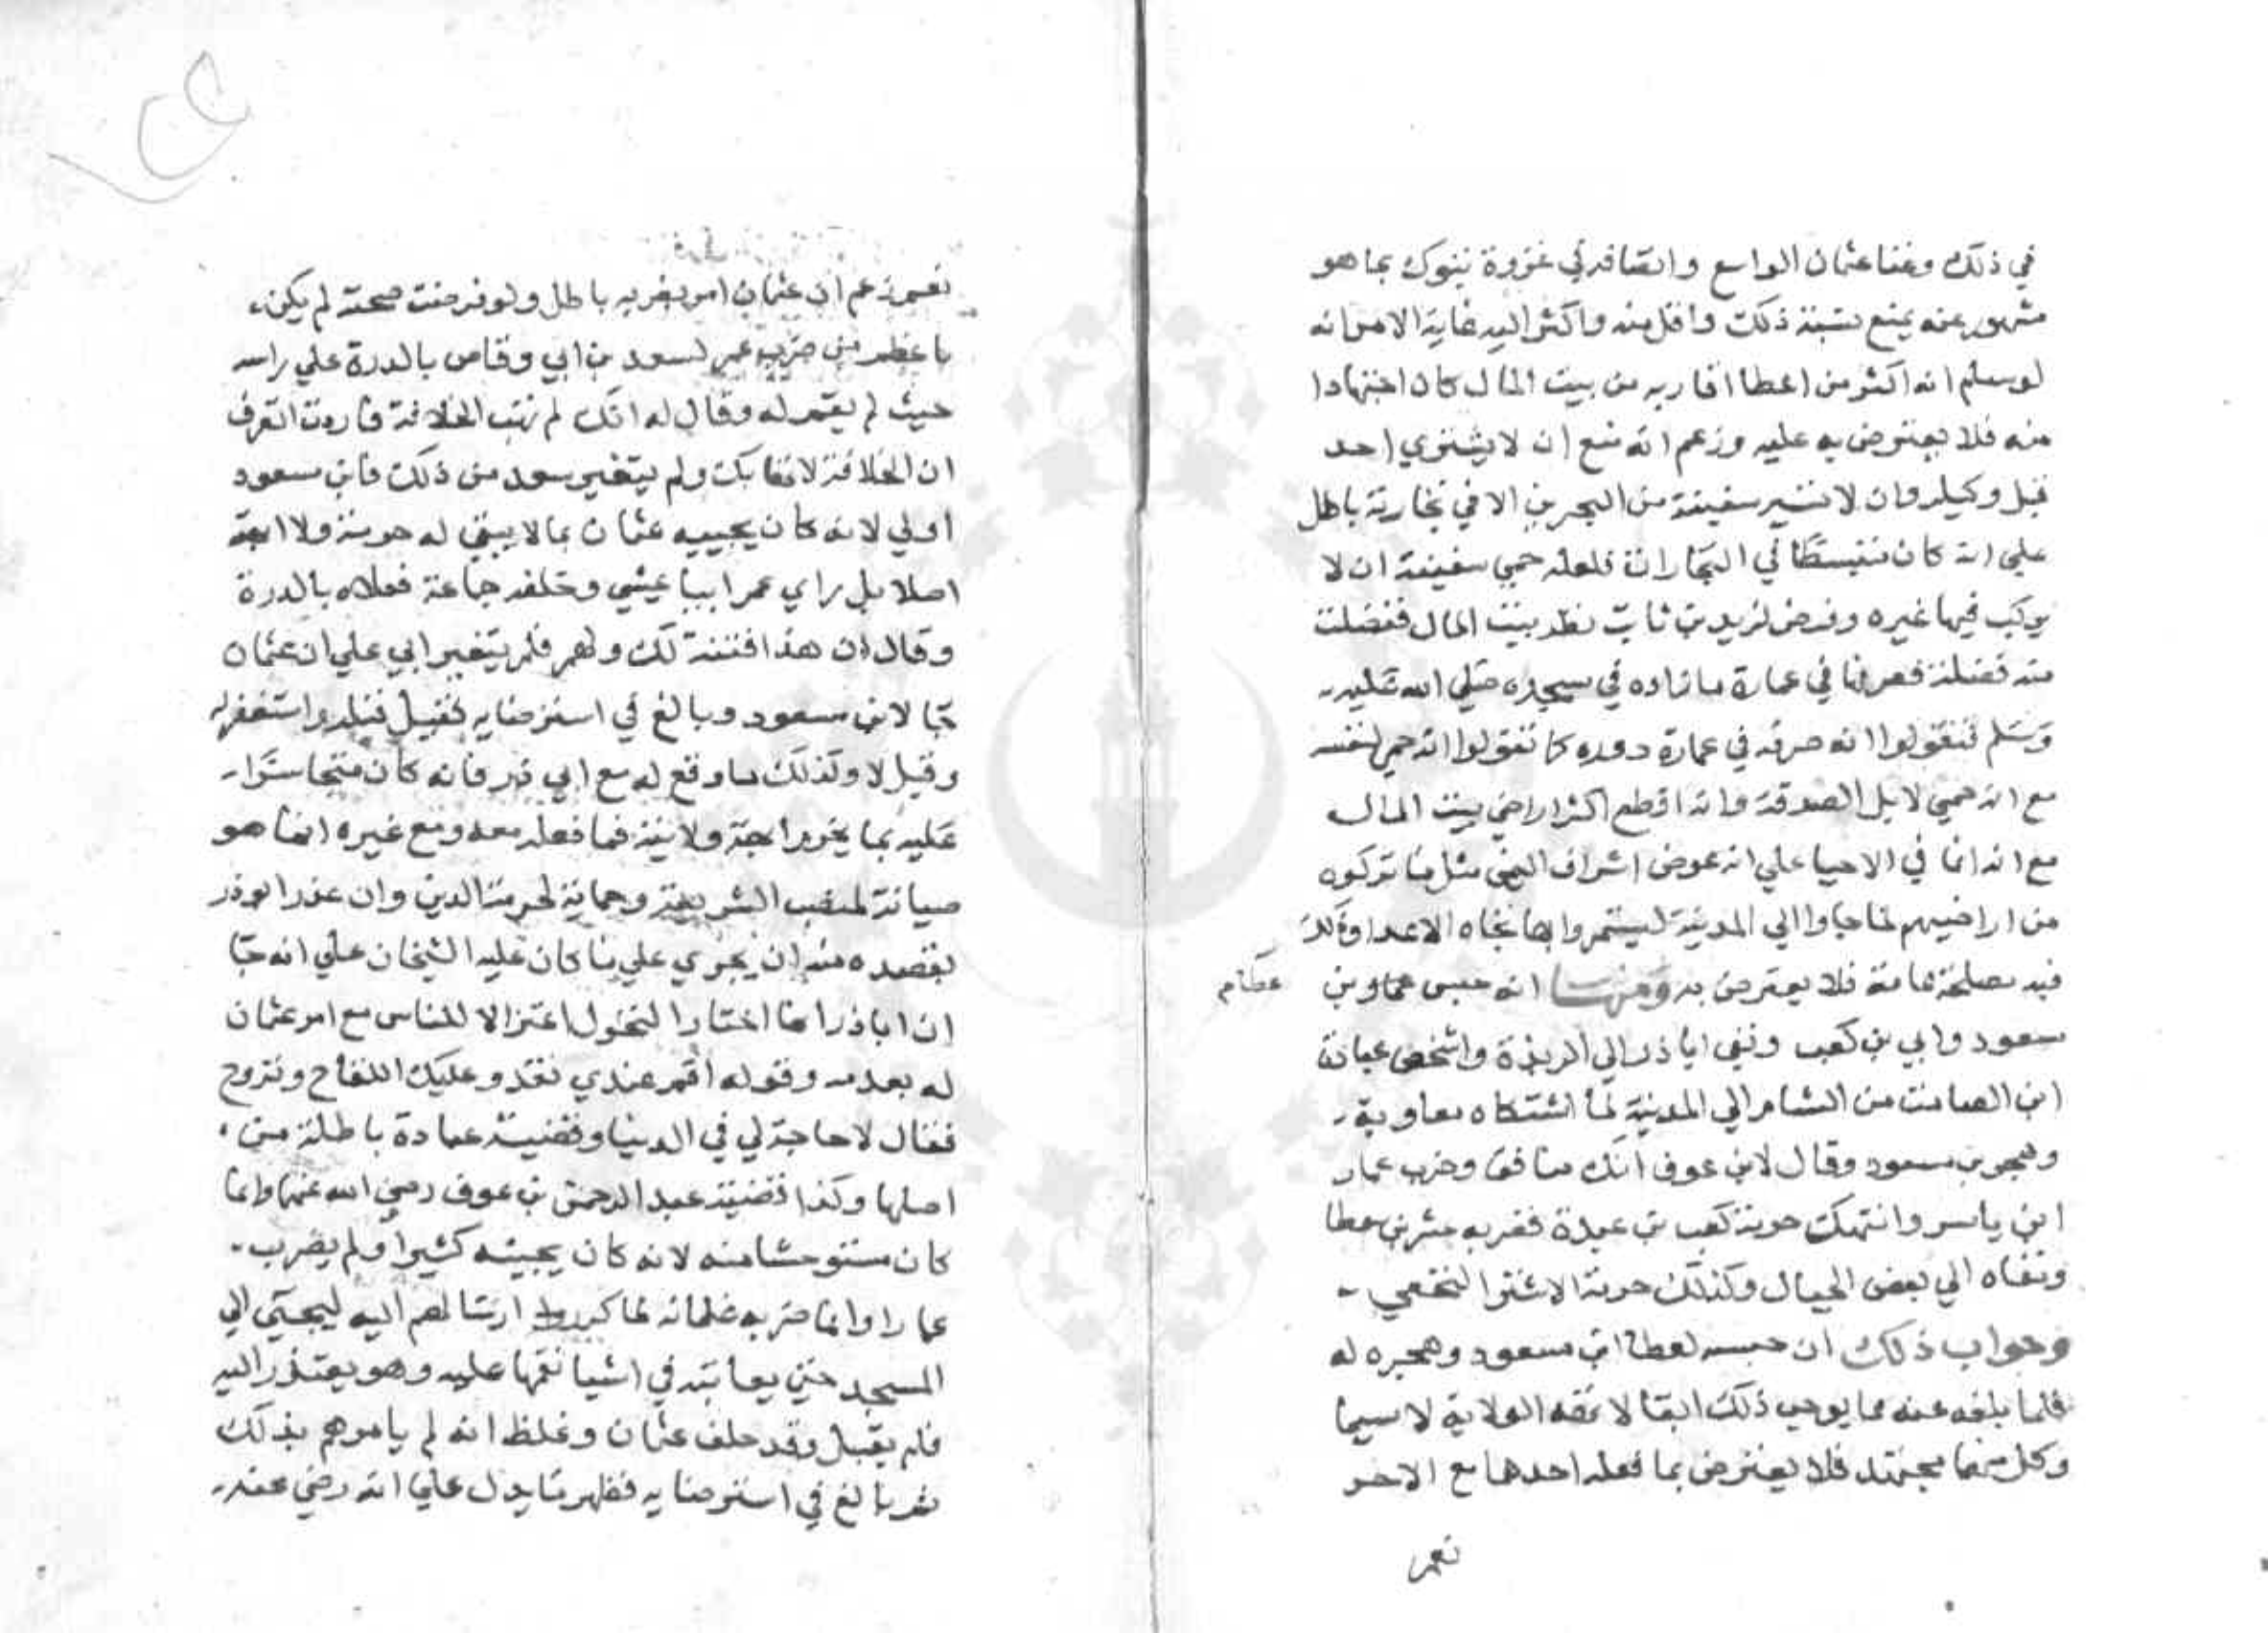 في ذلك وغنا عثمان الواسع وانفاقه في غزوة تبوك بما هو
مشهور عنه يمنع نسبة ذلك واقل منه واكثر اليه غاية الامر انه
لو سلم انه اكثر من اعطا اقاربه من بيت المال كان اجتهادا
منه فلا يعترض به عليه وزعم انه منع ان لا يشتري احد
قبل وكيله وان لا تسير سفينة من البحرين الا في تجارته باطل
علي انه كان منبسطا في التجارات فلعله حمي سفينته ان لا
يركب فيها غيره وفوض لزيد بن ثابت نظر بيت المال ففضلت
منه فضلة فصرفها في عمارة ما زاده في مسجده صلي الله عليه
وسلم فتقولوا انه صرفه في عمارة دوره كما تقولوا انه حمي لنفسه
مع انه حمي لابل الصدقة وانه اقطع اكثر اراضي بيت المال
مع انه انما في الاحيا علي انه عوض اشراف اليمن مثل ما تركوه
من اراضيهم لما جاوا الي المدينة ليستمروا بها تجاه الاعدا وذلك
فيه مصلحة عامة فلا يعترض به ومنها انه حبس عطا بن
عطا م
مسعود وابي بن كعب ونفى ابا ذر الي الربذة واشخص عبادة
ابن الصامت من الشام الي المدينة لما اشتكاه معاوية
وهجر بن مسعود وقال لابن عوف انك منافق وضرب عمار
ابن ياسر وانتهك حرمة كعب بن عبدة فضربه عشرين سوطا
ونفاه الي بعض الجبال وكذلك حرمة الاشتر النخعي
وجواب ذلك ان حبسه لعطا ابن مسعود وهجره له
فلما بلغه عنه مما يوجب ذلك ابقا لابهة الولاية لا سيما
وكل منهما مجتهد فلا يعترض بما فعله احدهما مع الاخر
نعم
نعم زعم ان عثمان امر بضربه باطل ولو فرضت صحته لم يكن
باعظم من ضرب عمر لسعد بن ابي وقاص بالدرة علي راسه
حيث لم يقم له وقال له انك لم تهب الخلافة فاردت ان تعرف
ان الخلافة لا تهابك ولم يتغير سعد من ذلك فابن مسعود
اولي لانه كان يجيبه عثمان بما لا يبقي له حرمة ولا ابهة
اصلا بل راي عمر ابيا يمشي وخلفه جماعة فعلاه بالدرة
وقال ان هذا فتنة لك ولهم فلم يتغير ابي علي ان عثمان
جا لابن مسعود وبالغ في استرضايه فقيل قبله واستغفر له
وقيل لا وكذلك ما وقع له مع ابي ذر فانه كان متجاسرا
عليه بما يخرم ابهة ولايته فما فعله معه ومع غيره انما هو
صيانة لمنصب الشريعة وحماية لحرمة الدين وان عذر ابو ذر
بقصده منه ان يجري علي ما كان عليه الشيخان علي انه جا
ان ابا ذر انما اختار التحول اعتزالا للناس مع امر عثمان
له بعدمه وقوله اقم عندي تغدو عليك اللقاح وتروح
فقال لا حاجة لي في الدنيا وقضية عبادة باطلة من
اصلها وكذا قضية عبد الرحمن بن عوف رضي الله عنهما وانما
كان مستوحشا منه لانه كان يجيبه كثيرا ولم يضرب
عمارا وانما ضربه غلمانه لما كرر ارسالهم اليه ليجئ الي
المسجد حتي يعاتبه في اشيا نقمها عليه وهو يعتذر اليه
فلم يقبل وقد حلف عثمان وغلظ انه لم يامرهم بذلك
ثم بالغ في استرضايه فظهر ما يدل علي انه رضي عنه